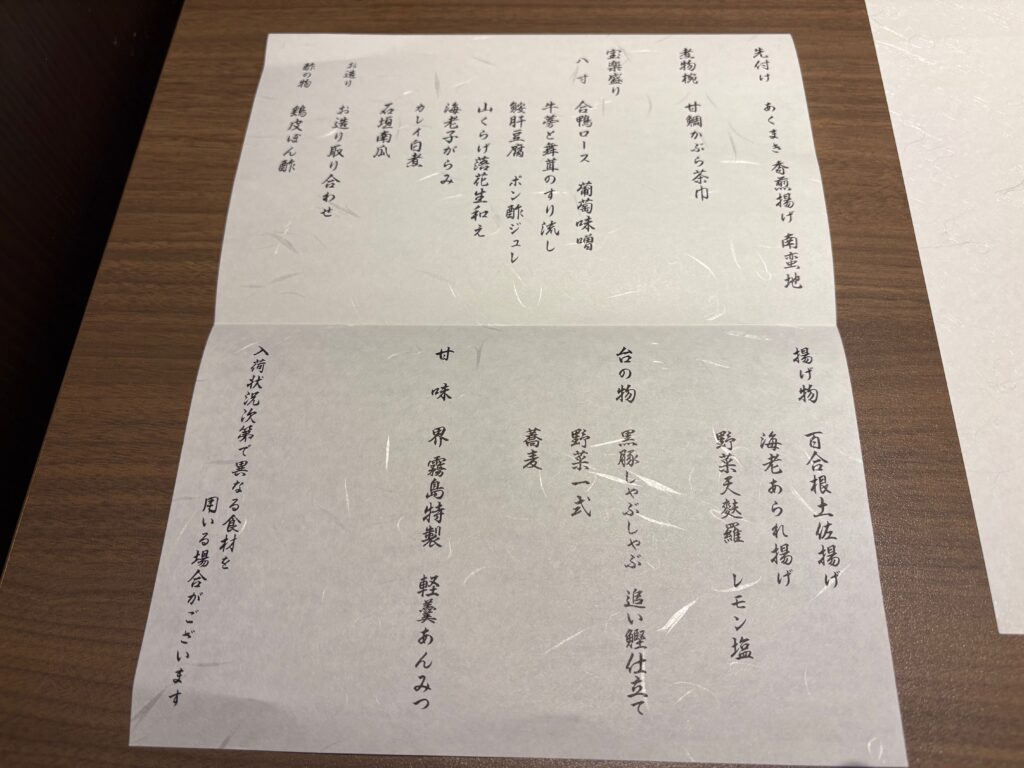 先付け　あくまき香煎揚げ　南蛮地
煮物椀　甘鯛かぶら茶巾
宝楽盛り
八寸　合鴨ロース　葡萄味噌
牛蒡と舞茸のすり流し
鮟肝豆腐　ポン酢ジュレ
山くらげ落花生和え
海老子がらみ
カレイ白煮
石垣南瓜
お造り　お造り取り合わせ
酢の物　鶏皮ぽん酢
揚げ物　百合根土佐揚げ
海老あられ揚げ
野菜天麩羅　レモン塩
台の物　黒豚しゃぶしゃぶ　追い鰹仕立て
野菜一式
蕎麦
甘味　界　霧島特製　軽羹あんみつ
入荷状況次第で異なる食材を
用いる場合がございます